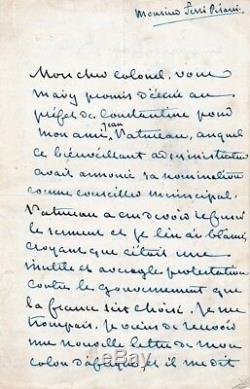 Monsieur Ferri Pisani.
Mon cher colonel, vous
m'avez promis d'écrire au
préfet de Constantine pour
mon ami Jean Vatuneau, auquel
ce bienveillant administrateur
avait annoncé sa nomination
comme conseiller municipal.
Vatuneau a cru devoir refuser
le serment et je l'en ai blâmé,
croyant que c'était une
inutile et aveugle protestation
contre le gouvernement que
la france s'est choisi. Je me
trompais. Je viens de recevoir
une nouvelle lettre de mon
colon d'afrique et il me dit